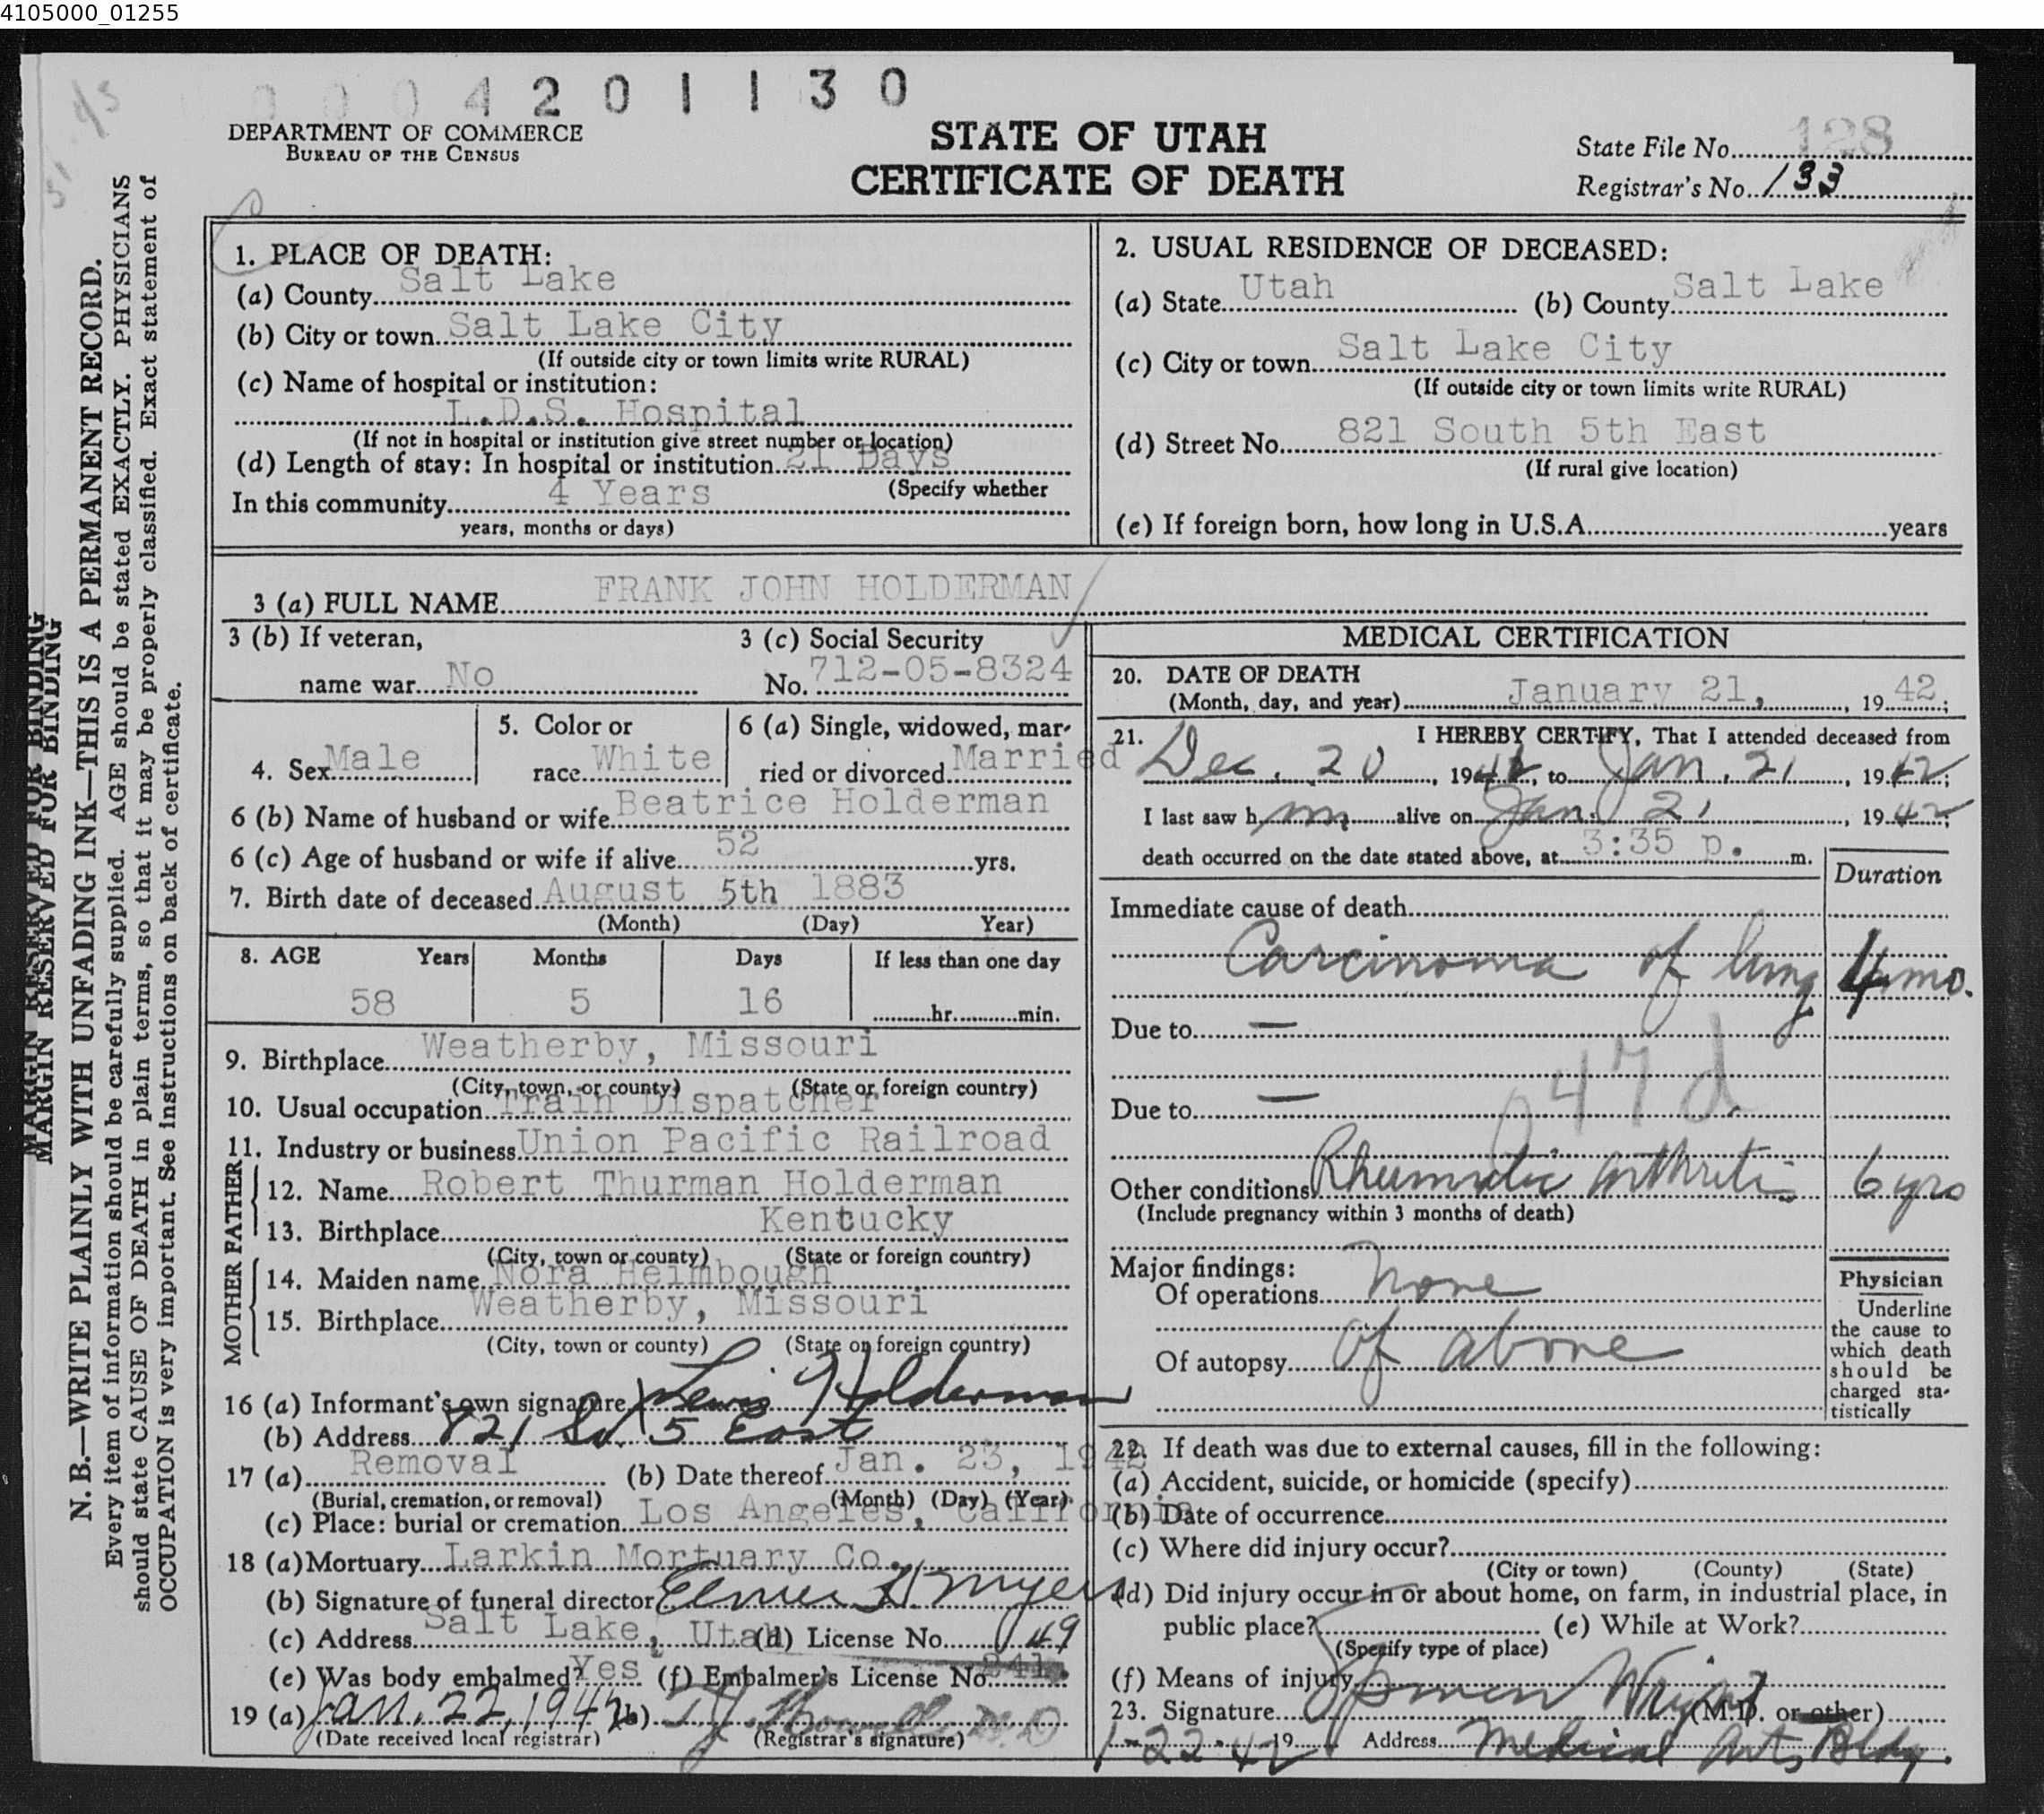 4105000_01255
0004201130
DEPARTMENT OF COMMERCE
BUREAU OF THE CENSUS
STATE OF UTAH
CERTIFICATE OF DEATH
State File No. 128
Registrar's No. 133
MARGIN RESERVED FOR BINDING
MARGIN RESERVED FOR BINDING
N. B.—WRITE PLAINLY WITH UNFADING INK—THIS IS A PERMANENT RECORD.
Every item of information should be carefully supplied. AGE should be stated EXACTLY. PHYSICIANS
should state CAUSE OF DEATH in plain terms, so that it may be properly classified. Exact statement of
OCCUPATION is very important. See instructions on back of certificate.
1. PLACE OF DEATH:
(a) County Salt Lake
(b) City or town Salt Lake City
(If outside city or town limits write RURAL)
(c) Name of hospital or institution:
L.D.S. Hospital
(If not in hospital or institution give street number or location)
(d) Length of stay: In hospital or institution 21 Days
(Specify whether
In this community 4 Years
years, months or days)
2. USUAL RESIDENCE OF DECEASED:
(a) State Utah (b) County Salt Lake
(c) City or town Salt Lake City
(If outside city or town limits write RURAL)
(d) Street No. 821 South 5th East
(If rural give location)
(e) If foreign born, how long in U.S.A. years
3 (a) FULL NAME FRANK JOHN HOLDERMAN
3 (b) If veteran, 3 (c) Social Security
name war No No. 712-05-8324
4. Sex Male 5. Color or race White 6 (a) Single, widowed, married or divorced Married
6 (b) Name of husband or wife Beatrice Holderman
6 (c) Age of husband or wife if alive 52 yrs.
7. Birth date of deceased August 5th 1883
(Month) (Day) Year)
8. AGE Years Months Days If less than one day
58 5 16 hr. min.
9. Birthplace Weatherby, Missouri
(City, town, or county) (State or foreign country)
10. Usual occupation Train Dispatcher
11. Industry or business Union Pacific Railroad
FATHER
12. Name Robert Thurman Holderman
13. Birthplace Kentucky
(City, town or county) (State or foreign country)
MOTHER
14. Maiden name Nora Heimbough
15. Birthplace Weatherby, Missouri
(City, town or county) (State or foreign country)
16 (a) Informant's own signature Lewis Holderman
(b) Address 821 So. 5 East
17 (a) Removal (b) Date thereof Jan. 23, 1942
(Burial, cremation, or removal) (Month) (Day) (Year)
(c) Place: burial or cremation Los Angeles, California
18 (a) Mortuary Larkin Mortuary Co.
(b) Signature of funeral director Elmer H. Myers
(c) Address Salt Lake, Utah (d) License No. 49
(e) Was body embalmed? Yes (f) Embalmer's License No. 241.
19 (a) Jan. 22, 1942 (b) T.J. Howells M.D
(Date received local registrar) (Registrar's signature)
MEDICAL CERTIFICATION
20. DATE OF DEATH
(Month, day, and year) January 21, , 1942;
21. I HEREBY CERTIFY, That I attended deceased from
Dec. 20, 194 , to Jan. 21, 1942;
I last saw him alive on Jan. 21, 1942;
death occurred on the date stated above, at 3:35 p. m.
Duration
Immediate cause of death
Carcinoma of lung 4 mo.
Due to —
47d
Due to —
Other conditions Rheumatic arthritis 6 yrs
(Include pregnancy within 3 months of death)
Major findings:
Of operations None
Of autopsy Of above
Physician
Underline
the cause to
which death
should be
charged sta-
tistically
22. If death was due to external causes, fill in the following:
(a) Accident, suicide, or homicide (specify)
(b) Date of occurrence
(c) Where did injury occur?
(City or town) (County) (State)
(d) Did injury occur in or about home, on farm, in industrial place, in
public place? (e) While at Work?
(Specify type of place)
(f) Means of injury
23. Signature Wright (M.D. or other)
1-22-42 19 Address Medical Arts Bldg.